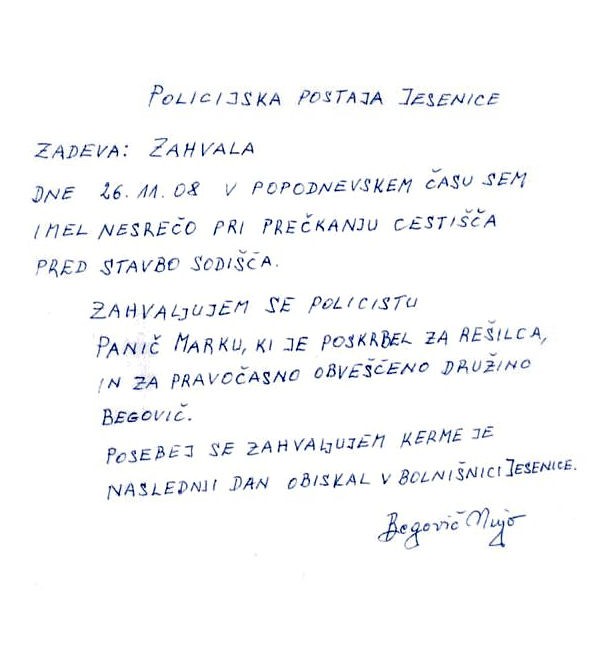 POLICIJSKA POSTAJA JESENICE
ZADEVA: ZAHVALA
DNE 26.11.08 V POPODNEVSKEM ČASU SEM
IMEL NESREČO PRI PREČKANJU CESTIŠČA
PRED STAVBO SODIŠČA.
ZAHVALJUJEM SE POLICISTU
PANIČ MARKU, KI JE POSKRBEL ZA REŠILCA,
IN ZA PRAVOČASNO OBVEŠČENO DRUŽINO
BEGOVIČ.
POSEBEJ SE ZAHVALJUJEM KERME JE
NASLEDNJI DAN OBISKAL V BOLNIŠNICI JESENICE.
Begovič Mujo